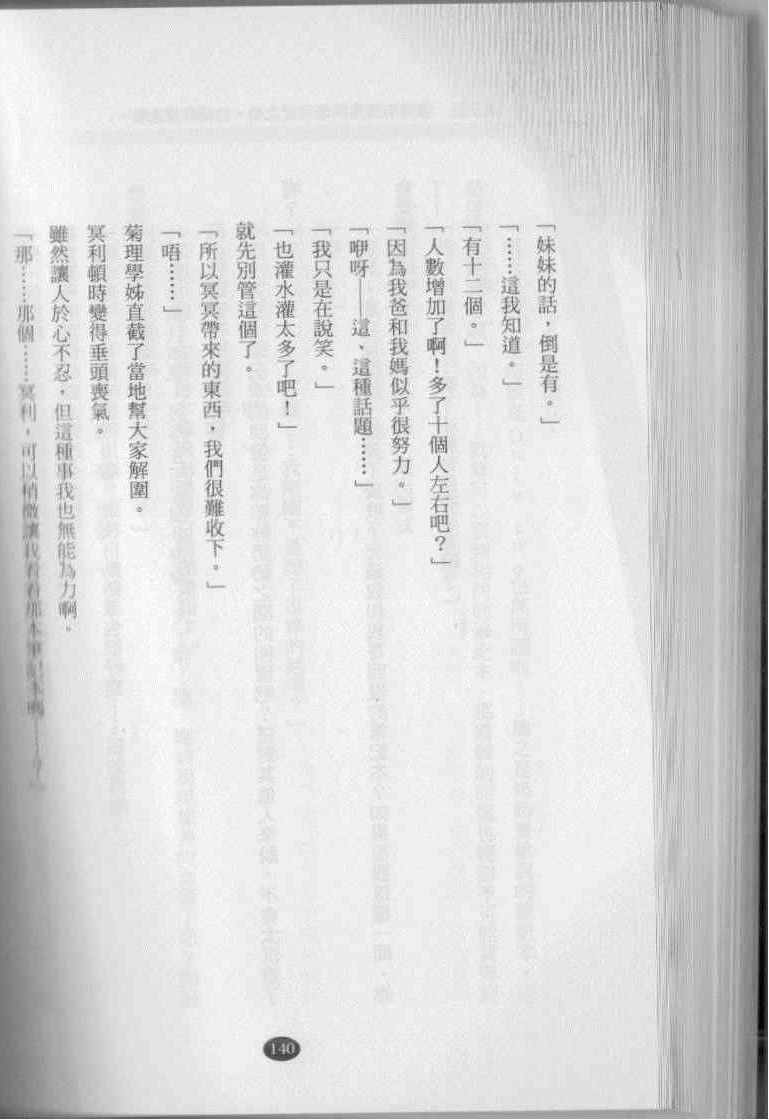 「妹妹的話，倒是有。」
「……這我知道。」
「有十二個。」
「人數增加了啊！多了十個人左右吧？」
「因為我爸和我媽似乎很努力。」
「咿呀——這、這種話題……」
「我只是在說笑。」
「也灌水灌太多了吧！」
就先別管這個了。
「所以冥冥帶來的東西，我們很難收下。」
「唔……」
菊理學姊直截了當地幫大家解圍。
冥利頓時變得垂頭喪氣。
雖然讓人於心不忍，但這種事我也無能為力啊。
「那……那個……冥利，可以稍微讓我看看那本筆記本嗎——？」
140